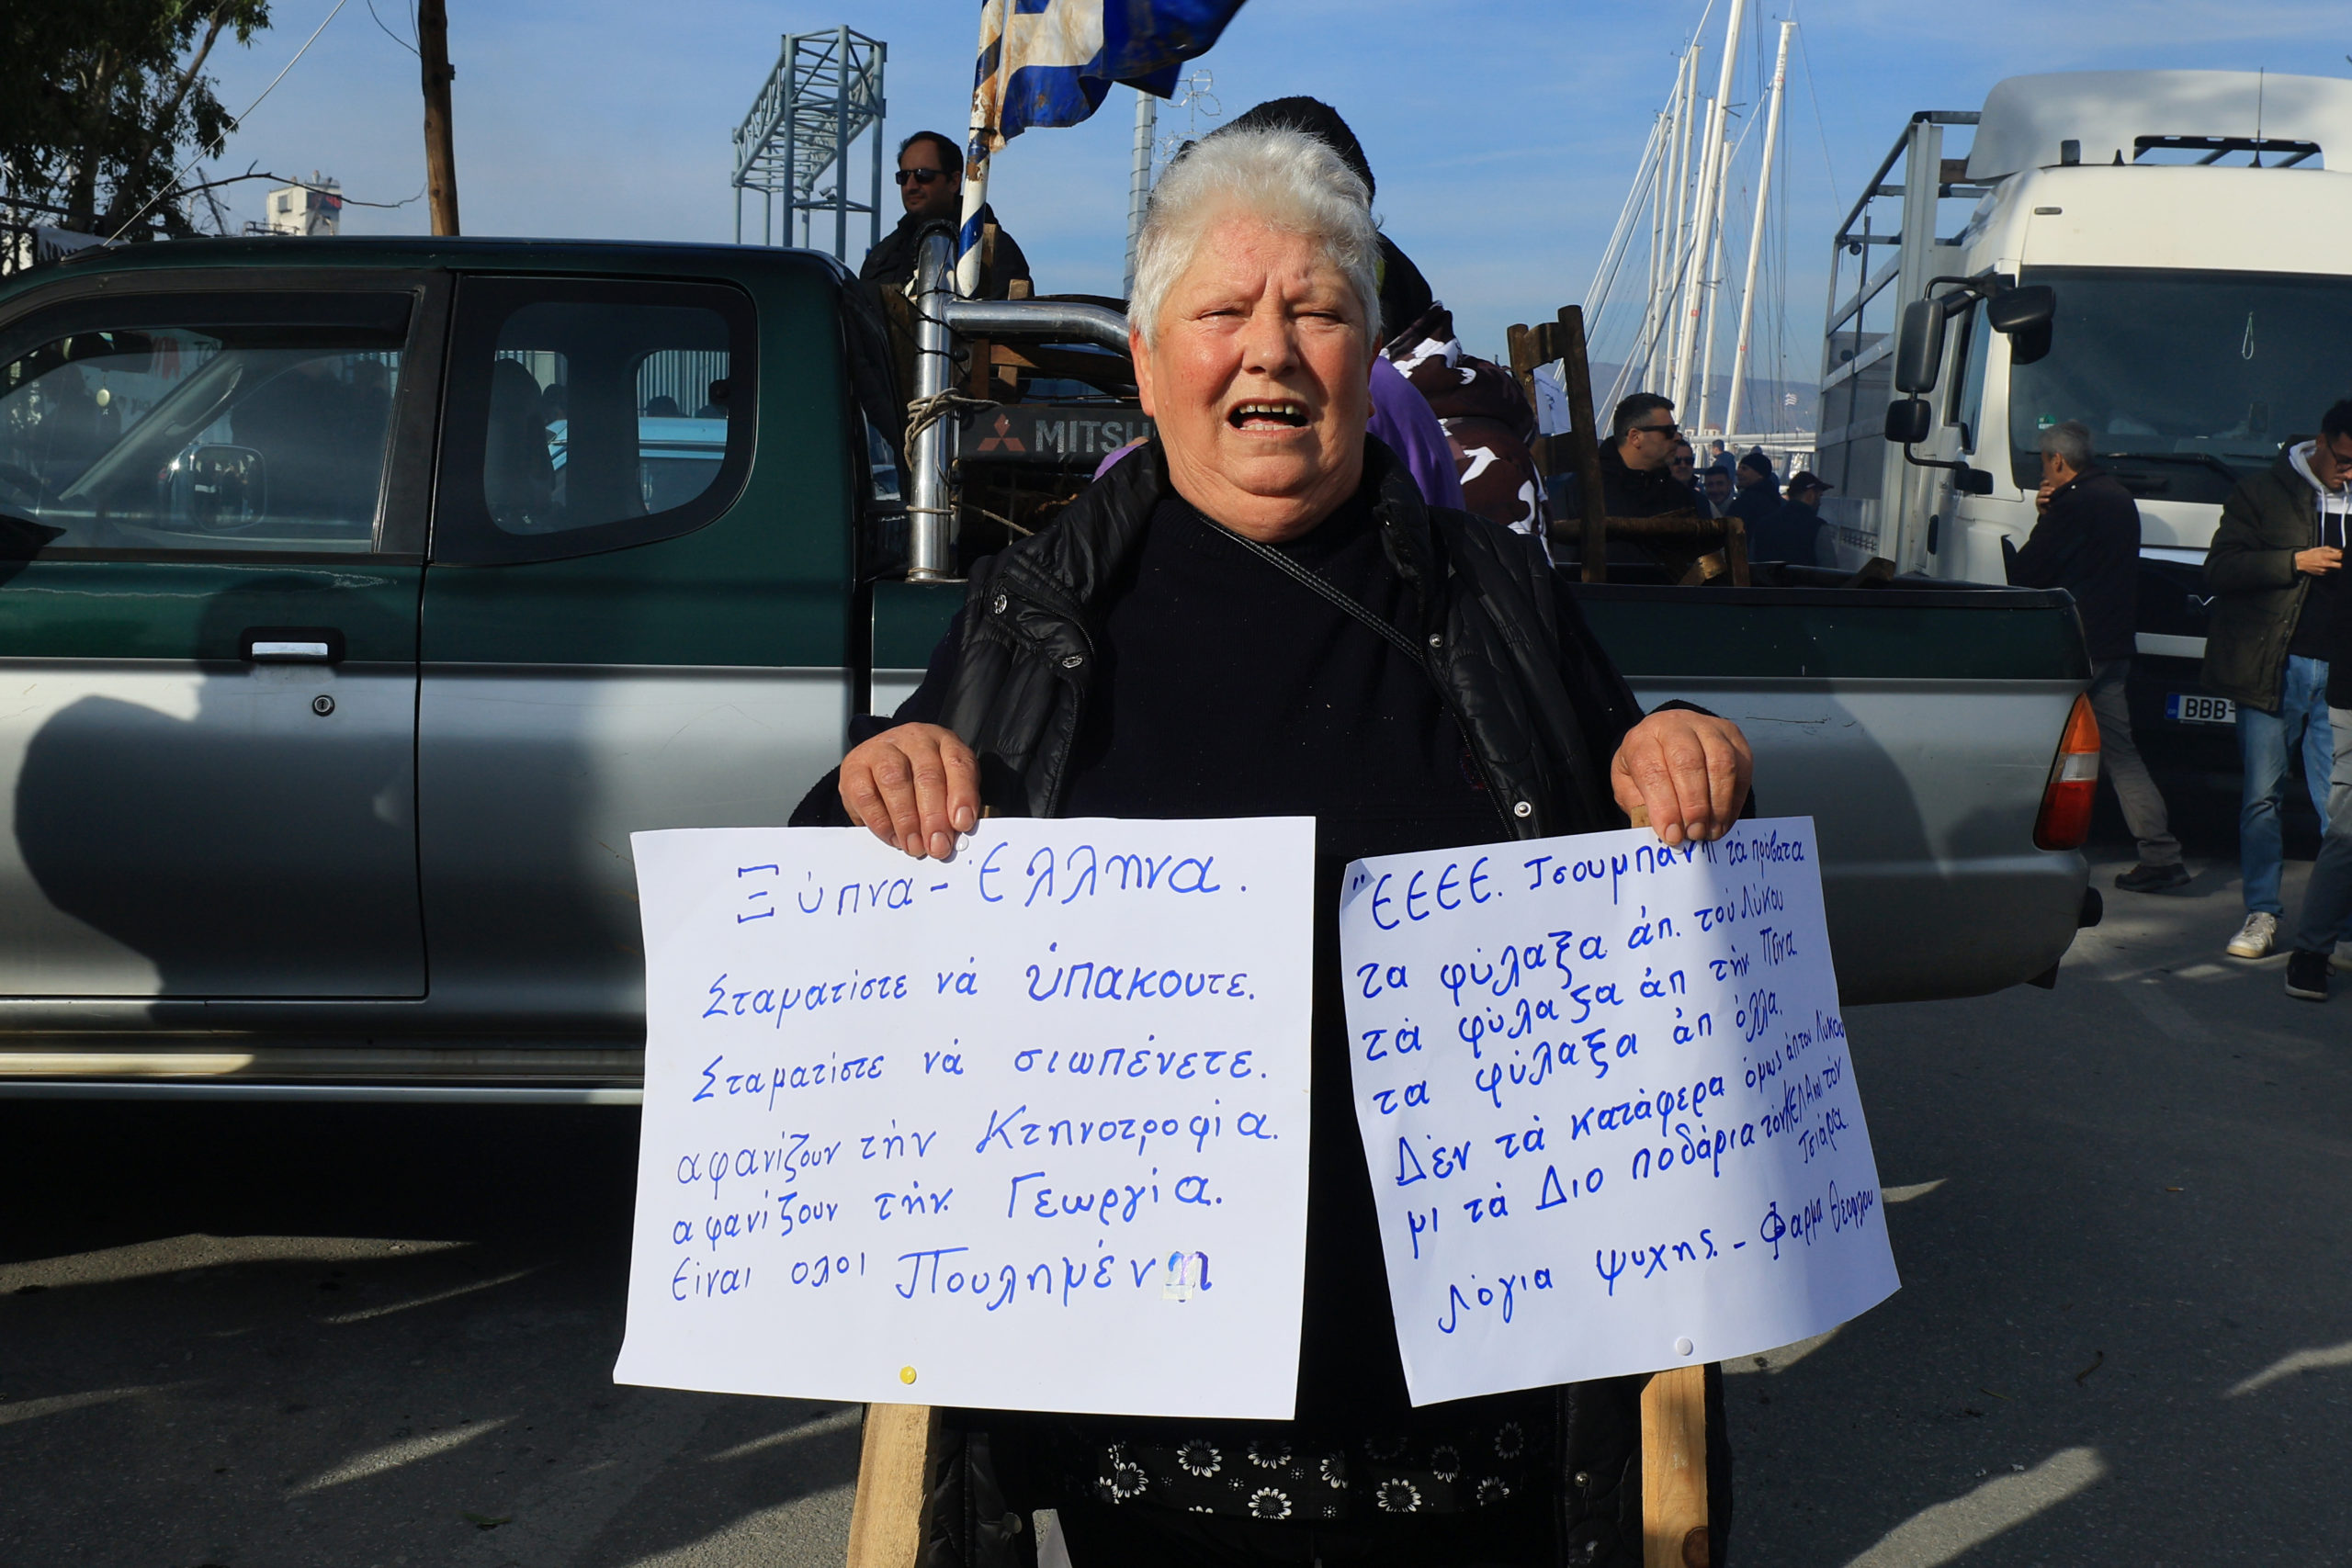 MITSU
BBB
Ξύπνα - Ελληνα.
Σταματίστε νά ύπακουτε.
Σταματίστε νά σιωπένετε.
αφανίζουν τήν Κτηνοτροφία.
αφανίζουν τήν Γεωργία.
Είναι ολοι Πουλημένη
"ΕΕΕΕ. Τσουμπάνη τά πρόβατα
τα φύλαξα άπ. τού Λύκου
τά φύλαξα άπ τήν Πείνα
τα φύλαξα άπ όλλα.
Δέν τά κατάφερα όμως άπ του Λύκου
μι τά Διο ποδάρια τόν ΚΕΛΑ και τόν
Τσιάρα.
Λόγια ψυχης. - Φαρμα